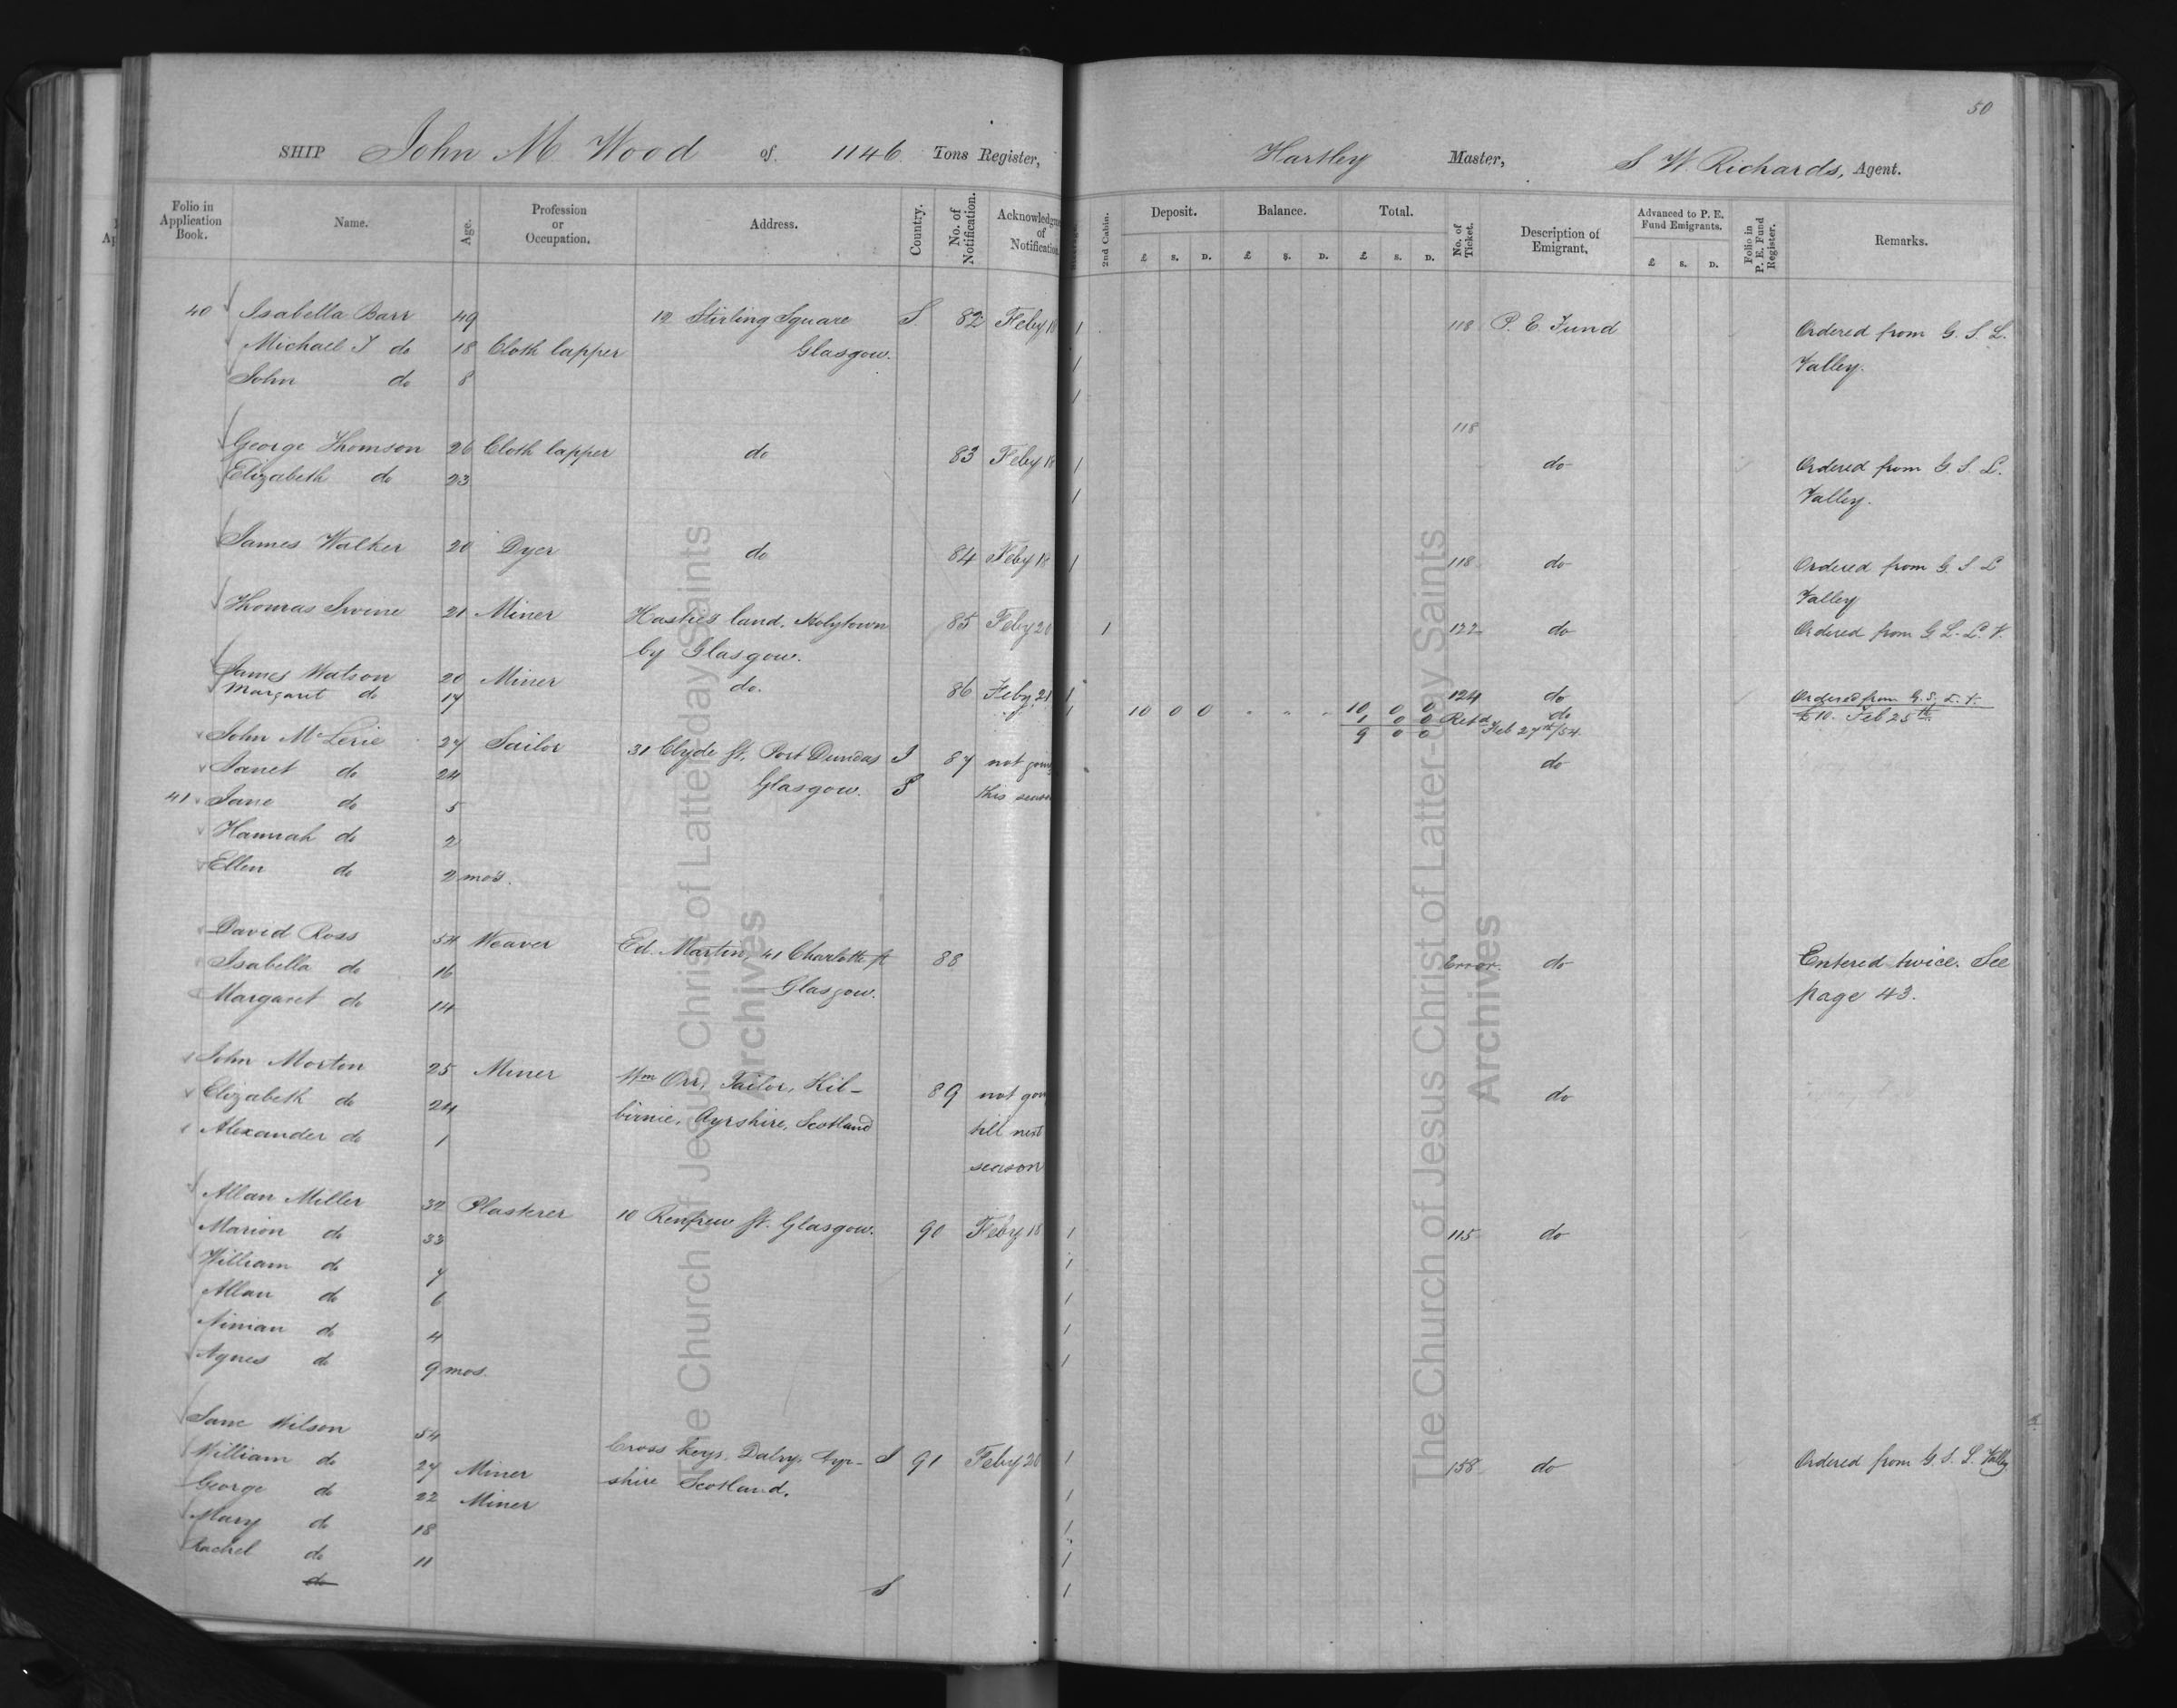 50
SHIP John M Wood of 1146 Tons Register, Hartley Master, S W Richards, Agent.
Folio in Application Book. Name. Age. Profession or Occupation. Address. Country. No. of Notification. Acknowledgm of Notification 2nd Cabin. Deposit. £ S. D. Balance. £ S. D. Total. £ S. D. No. of Ticket. Description of Emigrant. Advanced to P. E. Fund Emigrants. £ S. D. Folio in P. E. Fund Register. Remarks.
40 Isabella Barr 49 12 Stirling Square S. 82 Feby 18 1 118 P. E. Fund Ordered from G. S. L.
Michael J do 18 Cloth lapper Glasgow. 1 Valley.
John do 8 1
118
George Thomson 26 Cloth lapper do 83 Feby 18 1 do Ordered from G. S. L.
Elizabeth do 23 1 Valley.
James Walker 20 Dyer do 84 Feby 18 1 118 do Ordered from G. S L
Valley
Thomas Irvine 21 Miner Hastie's land. Holytown 85 Feby 20 1 122 do Ordered from G L. L. V.
by Glasgow.
James Watson 20 Miner do. 86 Feby 21 1 124 do Ordered from G. S. L. V.
Margaret do 17 1 10 0 0 " " " 10 0 0 do £10. Feb 25th
1 0 0 Retd Feb 27th/54.
9 0 0
John McLerie 27 Sailor 31 Clyde St, Port Dundas I 87 not going do
Janet do 24 Glasgow. S this season
41 Jane do 5
Hannah do 2
Ellen do 2 mos.
David Ross 54 Weaver Ed. Martin, 41 Charlotte St 88 Error. do Entered twice. See
Isabella do 16 Glasgow. page 43.
Margaret do 14
John Morton 25 Miner Wm Orr, Tailor, Kil- 89 not goin do
Elizabeth do 24 birnie, Ayrshire, Scotland till next
Alexander do 1 season
Allan Miller 32 Plasterer 10 Renfrew St. Glasgow. 90 Feby 18 1 115 do
Marion do 33 1
William do 7
Allan do 6 1
Ninian do 4 1
Agnes do 9 mos. 1
Jane Wilson 54 Cross Keys, Dalry, Ayr- S 91 Feby 20 1 158 do Ordered from G. S. L. Valley
William do 27 Miner shire Scotland. 1
George do 22 Miner 1
Mary do 18 1
Rachel do 11 1
do S
The Church of Jesus Christ of Latter-day Saints
Archives
The Church of Jesus Christ of Latter-day Saints
Archives